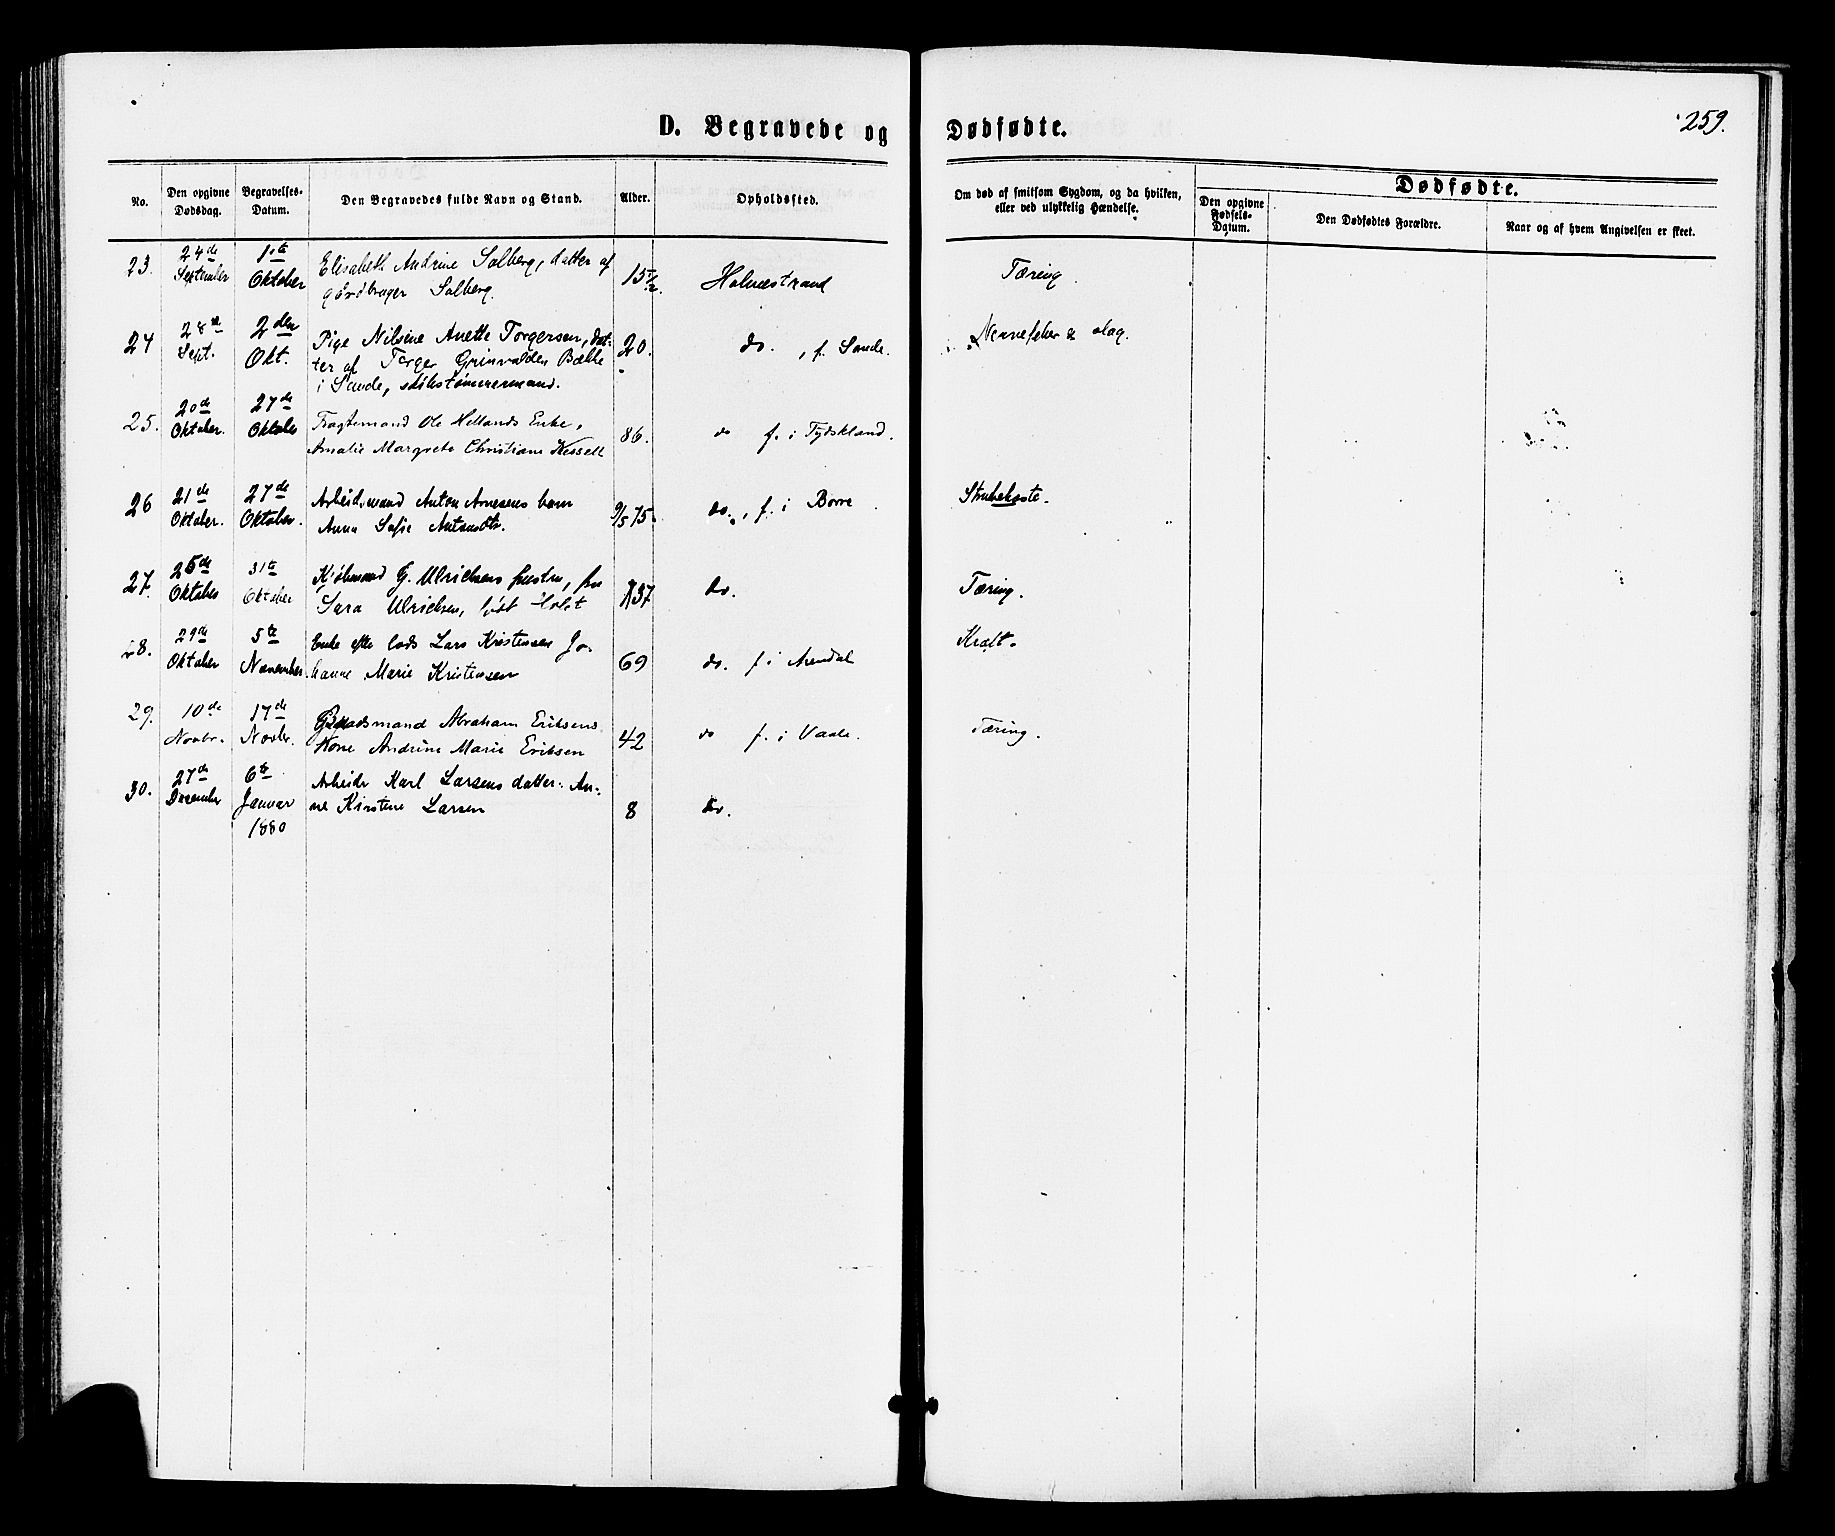 D. Begravede og Dødfødte.
259.
No.
Den opgivne Dødsdag.
Begravelses-Datum.
Den Begravedes fulde Navn og Stand.
Alder.
Opholdssted.
Om død af smitsom Sygdom, og da hvilken, eller ved ulykkelig Hændelse.
Dødfødte.
Den opgivne Fødsels-Datum.
Den Dødfødtes Forældre.
Naar og af hvem Angivelsen er skeet.
23. 24de 1ste Elisabeth Andrine Solberg, datter af
September Oktober gårdbruger Solberg. 15 Holmestrand Tæring
24 28de 2den Pige Nilsine Anette Torgersen, dat-
Sept. Okt. ter af Torger Grinvolden Bække 20. do. , f. Sande.
i Sande, skibstømmermand.
25. 20de 27de Fragtemand Ole Hellands Enke,
Oktober. Oktober Amalie Margrete Christiane Kessell 86. do f. i Tydskland.
26 21de 27de Arbeidsmand Anton Arnesens barn
Oktober. Oktober. Anna Sofie Antonsdtr. 9/5 75. do., f. i Borre Strubehoste.
27. 25de 31te Kjøbmand G. Ulrichsens hustru, fru
Oktober Oktober Sara Ulrichsen, født Holst 37 do. Tæring.
28. 29de 5te Enke efter lods Lars Kristensen Jo-
Oktober November. hanne Marie Kristensen 69 do. f i Arendal Kræft.
29. 10de 17de Abraham Eriksens
Novbr. Novbr. Kone Andrine Marie Eriksen 42 do f. i Vaale. Tæring.
30. 27de 6te Arbeider Karl Larsens datter: An-
December Januar ne Kirstine Larsen 8 do.
1880